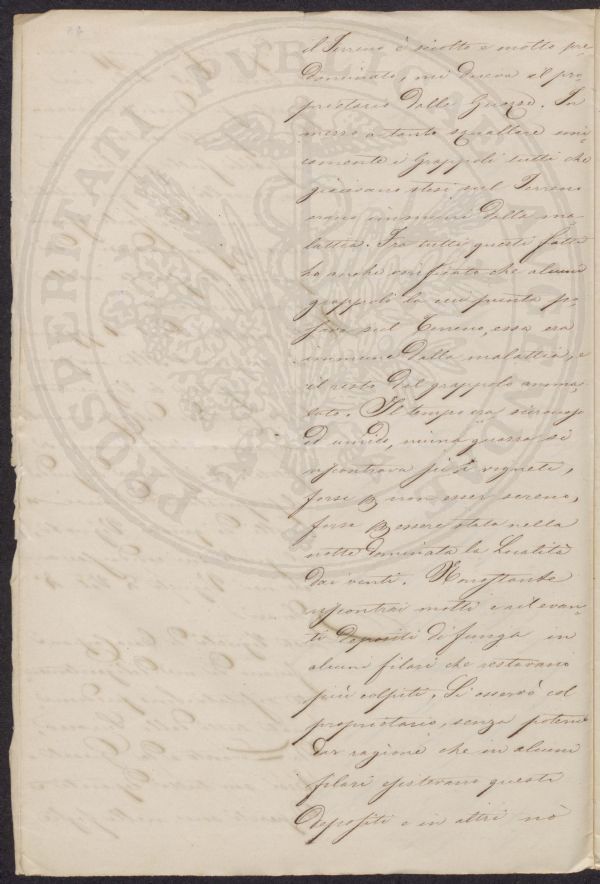 il Terreno è sciolto e molto pre-
dominato, mi diceva il pro-
prietario dalla Guazza. In
mezzo a tanto squallore uni-
camente i Grappoli tutti che
giacevano stesi sul Terreno
erano immuni dalla ma-
lattia. Fra tutti questi fatti
ho anche verificato che alcuni
grappoli la cui punta po-
sava sul Terreno, essa era
immune dalla malattia, e
il resto del grappolo amma-
lato. Il tempo era
ed umido, niuna guazza si
riscontrava su i vigneti,
forse p non esser sereno,
forse p essere stata nella
notte dominata la Località
dai venti. Nonostante
riscontrai molti e rilevan-
ti depositi di funga in
alcuni filari che restavano
più colpiti. Si osservò col
proprietario, senza poterne
dar ragione che in alcuni
filari esistevano questi
depositi e in altri nò
PROSPERITATI PVBLICAE AVGENDAE